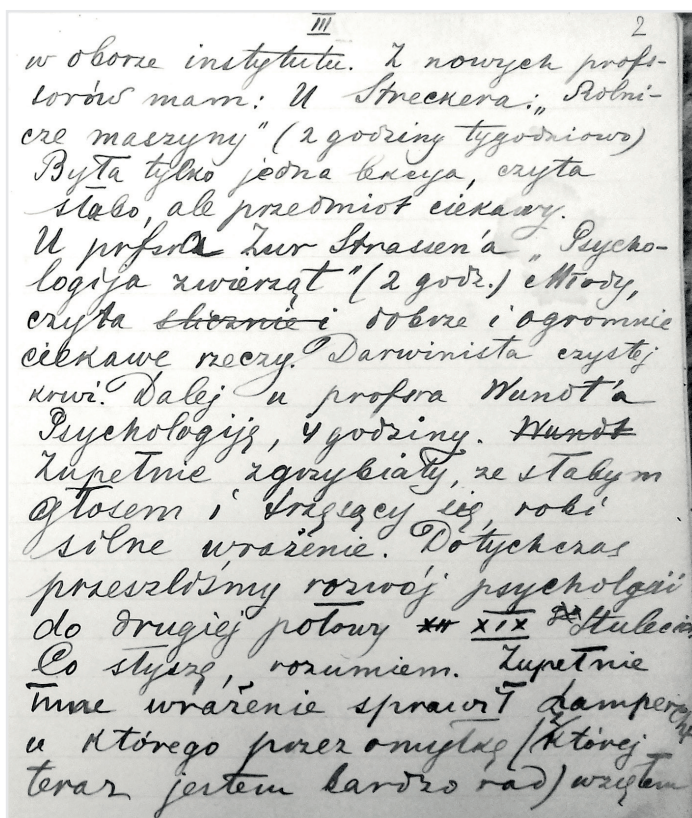 III 2
w oborze instytutu. Z nowych profs-
sorów mam: U Streckera: „Rolni-
cze maszyny" (2 godziny tygodniowo)
Była tylko jedna lekcya, czyta
słabo, ale przedmiot ciekawy.
U prfsra Zur Strassen'a „Psycho-
logija zwierząt" (2 godz.) Młody,
czyta ślicznie i dobrze i ogromnie
ciekawe rzeczy. Darwinista czystej
krwi. Dalej u profsra Wundt'a
Psychologiję, 4 godziny. Wundt
Zupełnie zgrzybiały, ze słabym
głosem i trzęsący się, robi
silne wrażenie. Dotychczas
przeszliśmy rozwój psychologii
do drugiej połowy XIX Stulecia
Co słyszę, rozumiem. Zupełnie
inne wrażenie sprawił Lamprecht
u którego przez omyłkę (z której
teraz jestem bardzo rad) wziąłem